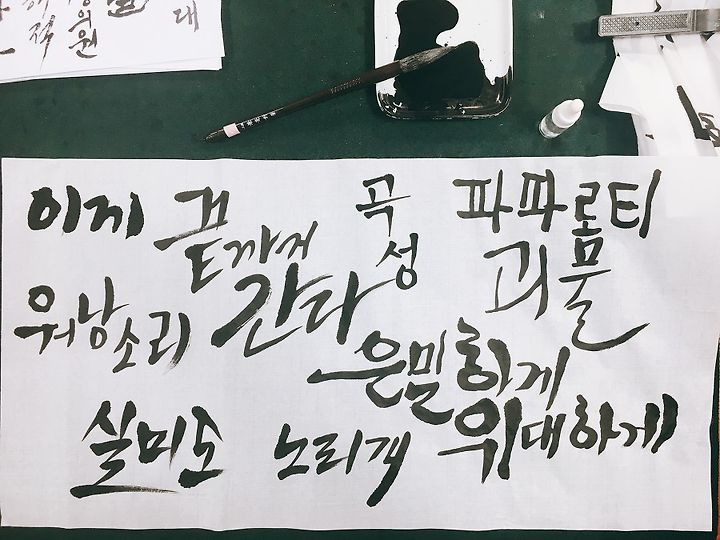 대
의원
적
이제 끝까지 간다
곡성
파파로티
괴물
워낭소리
은밀하게
위대하게
실미도
노리개